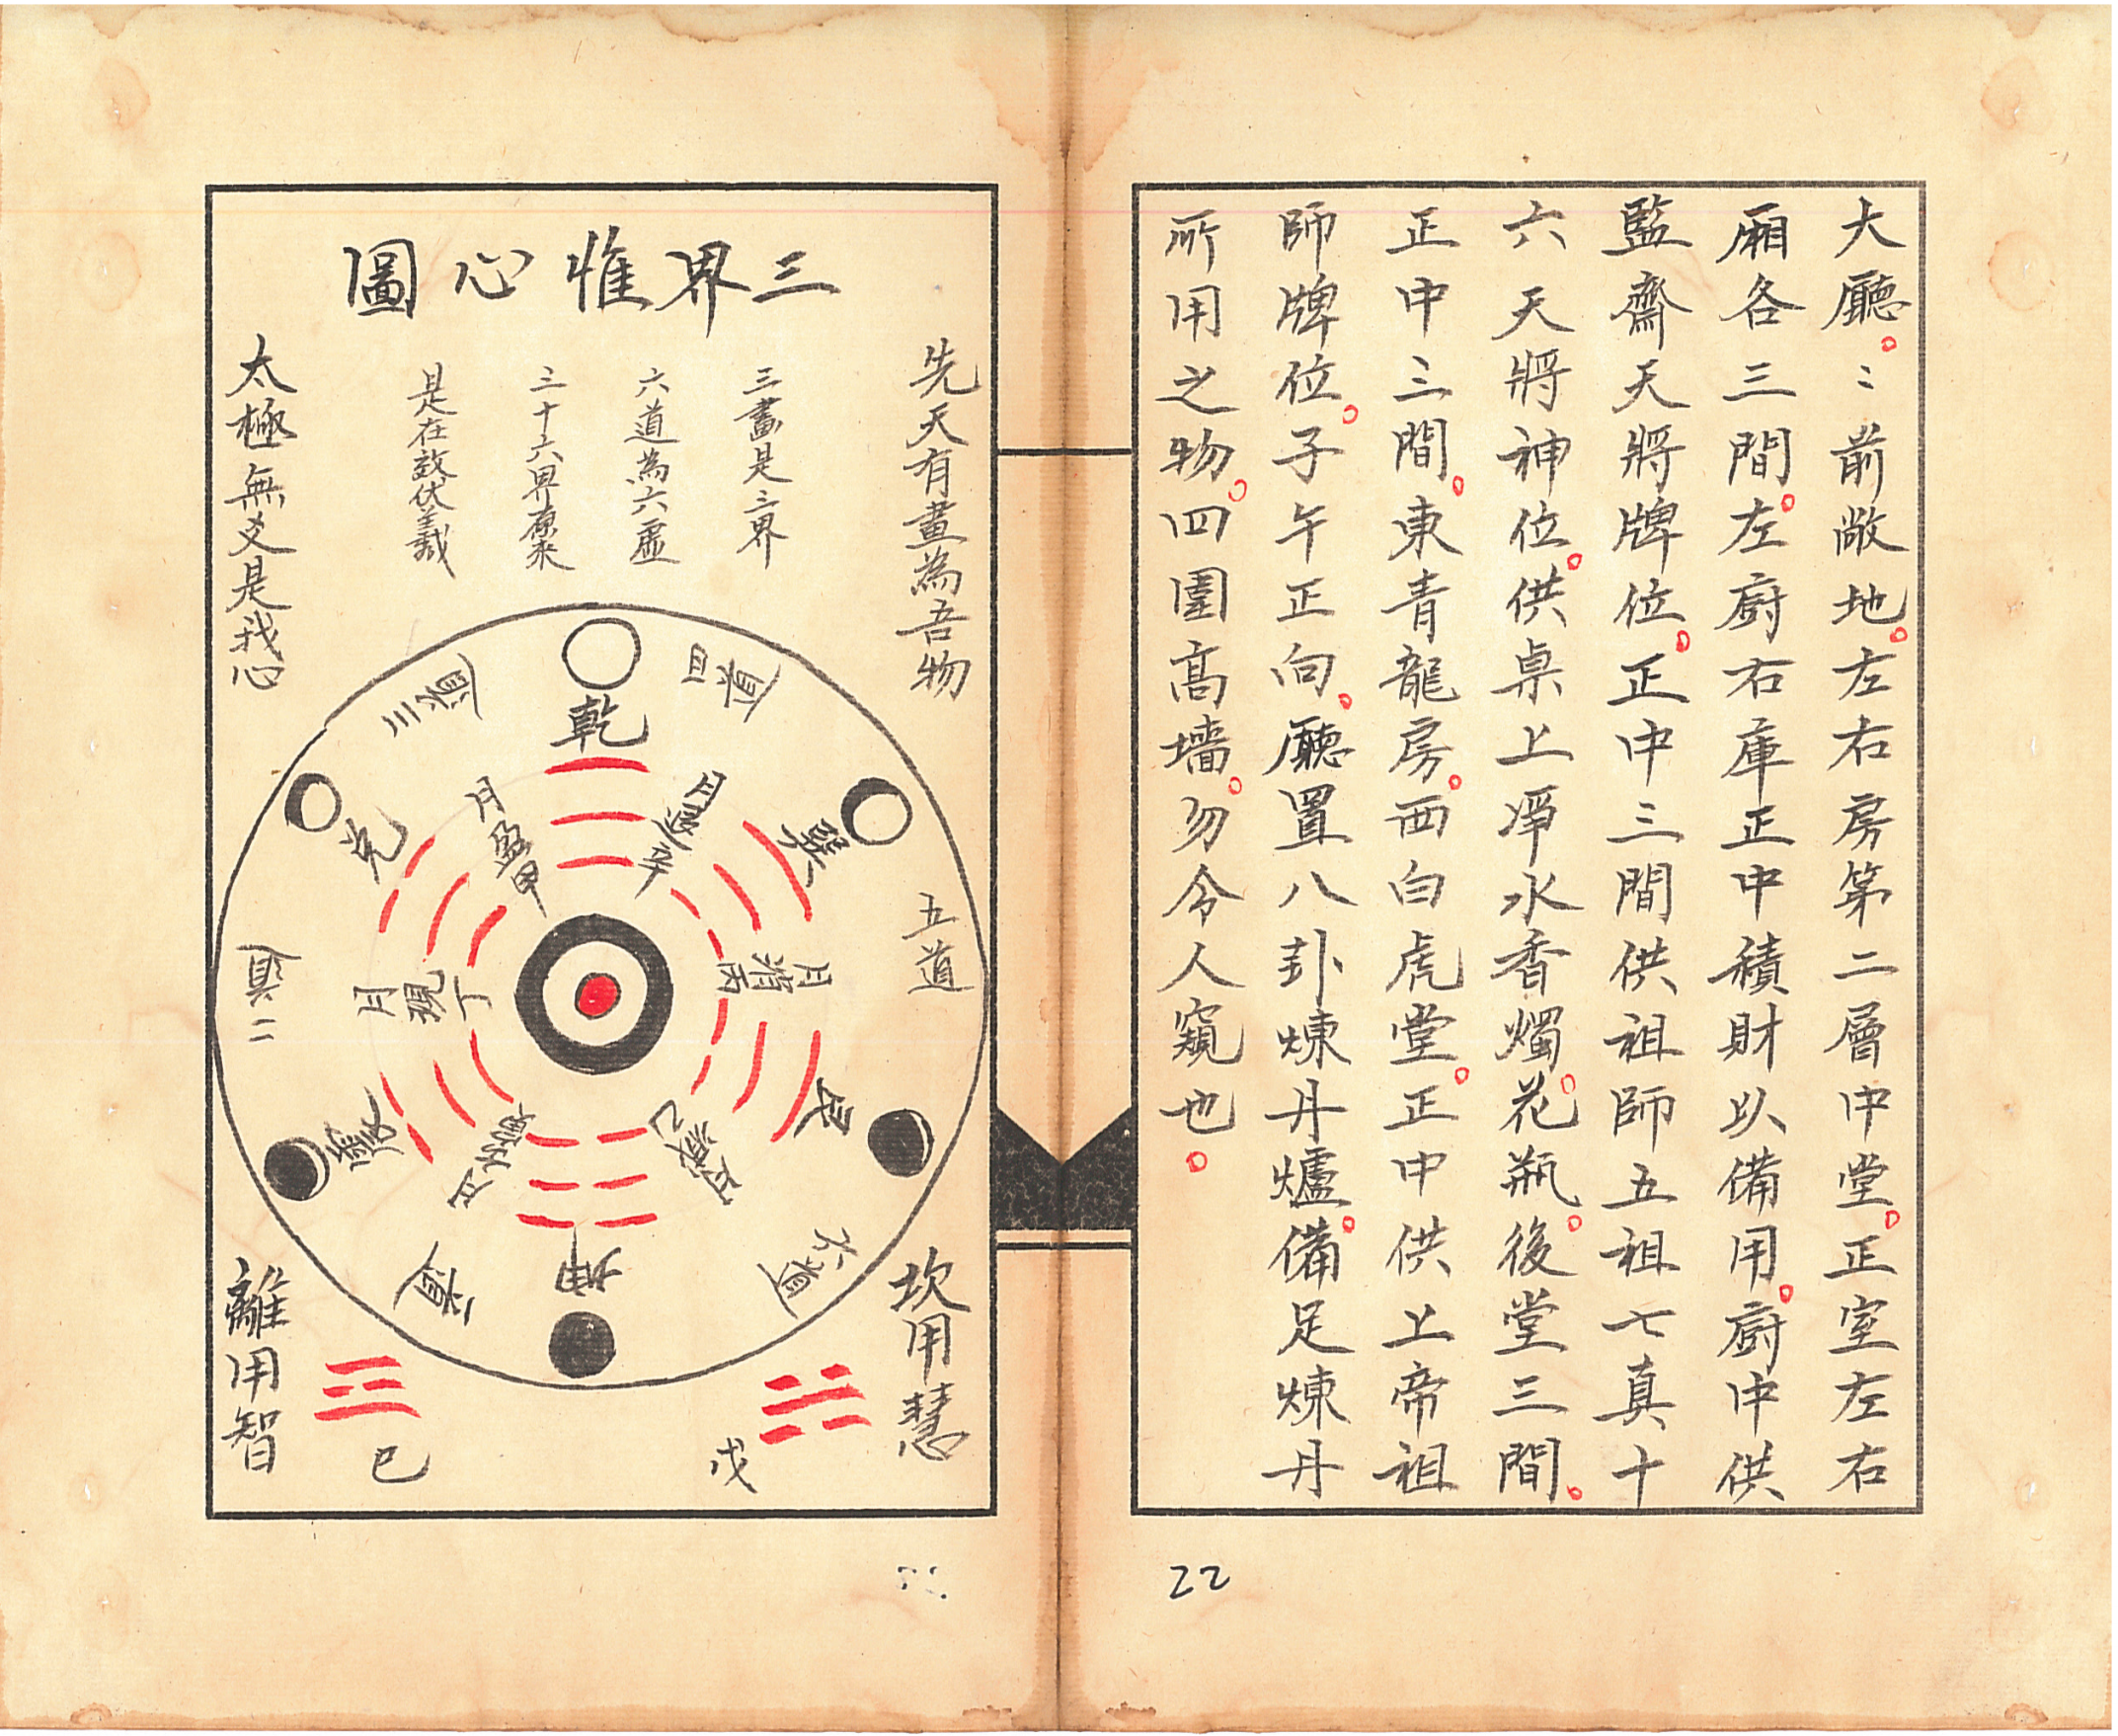 大廳。〻前敞地。左右房第二層中堂。正室左右
廂各三間。左廚右庫正中積財以備用。廚中供
監齋天將牌位。正中三間供祖師五祖七真十
六天將神位。供桌上凈水香燭。花瓶。後堂三間。
正中三間。東青龍房。西白虎堂。正中供上帝祖
師牌位。子午正向。廳置八卦煉丹爐。備足煉丹
所用之物。四圍高墻。勿令人窺也。
22
三界惟心圖
先天有畫為吾物
三畫是三界
六道為六虛
是在效伏羲
太極無爻是我心
乾
巽
艮
坤
震
兌
月盈甲
月退辛
月消丙
月現丁
五道
六道
坎用慧
戊
離用智
巳